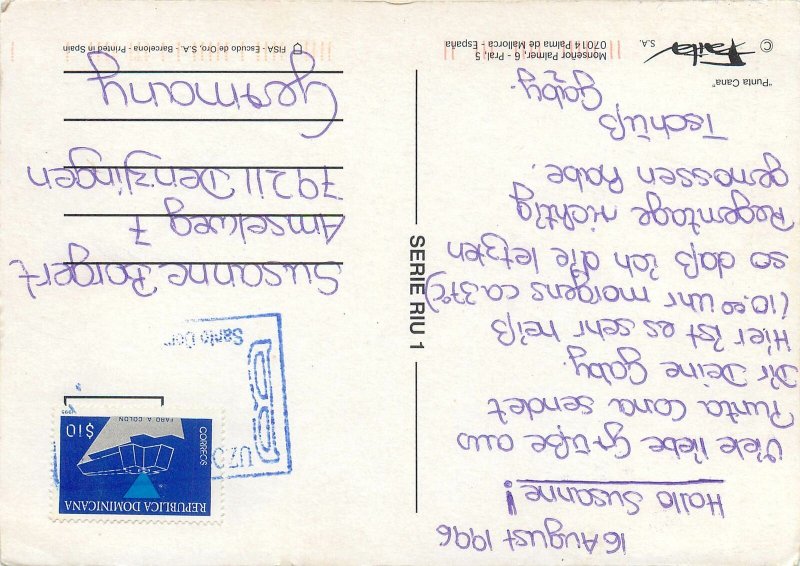 16 August 1996
Hallo Susanne!
Viele liebe Grüße aus
Punta Cana sendet
Dir Deine Gaby.
Hier ist es sehr heiß
(10.00 Uhr morgens ca. 37°C)
so daß ich die letzten
Regentage richtig
genossen habe.
Tschüß
Gaby.
"Punta Cana"
©
S.A.
Monseñor Palmer, 6 - Pral 5
07014 Palma de Mallorca - España
SERIE RIU 1
REPUBLICA DOMINICANA
CORREOS
$10
FARO A COLON
1995
Santo Dom
Susanne Borgert
Amselweg 7
79211 Denzlingen
Germany
FISA - Escudo de Oro, S.A. - Barcelona - Printed in Spain